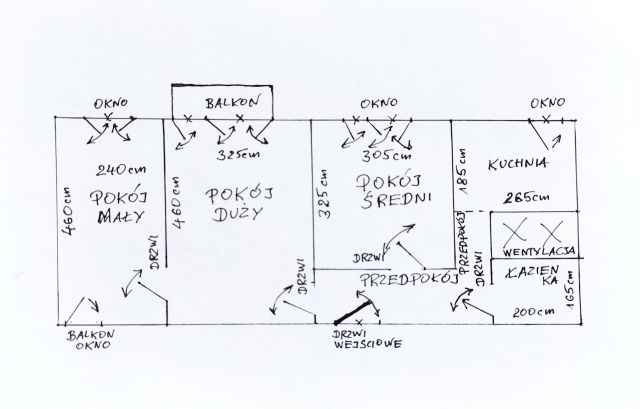 OKNO
BALKON
OKNO
OKNO
240cm
POKÓJ
MAŁY
460cm
325cm
POKÓJ
DUŻY
460cm
305cm
POKÓJ
ŚREDNI
325cm
KUCHNIA
185cm
265cm
WENTYLACJA
ŁAZIEN
KA
165cm
200cm
PRZEDPOKÓJ
DRZWI
DRZWI
PRZEDPOKÓJ
DRZWI
DRZWI
BALKON
OKNO
DRZWI
WEJŚCIOWE